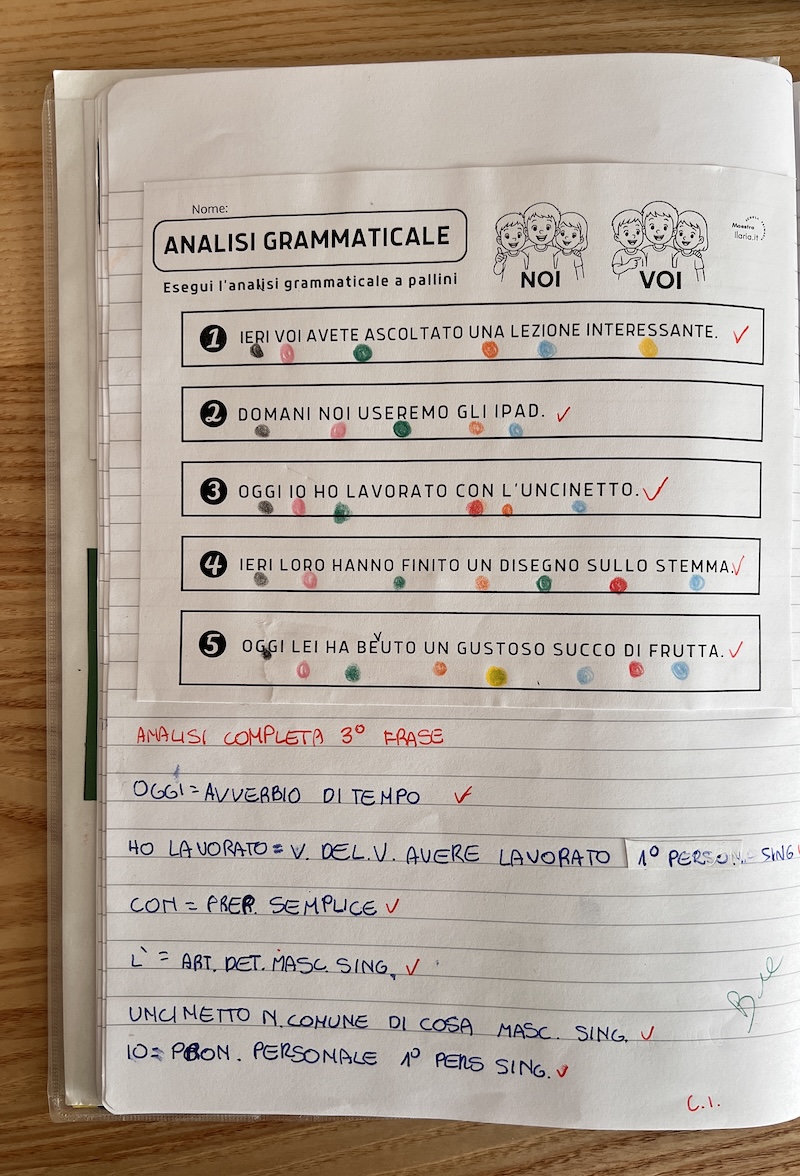 Nome:
ANALISI GRAMMATICALE
Esegui l'analisi grammaticale a pallini
NOI
VOI
Maestra
Ilaria.it
1 IERI VOI AVETE ASCOLTATO UNA LEZIONE INTERESSANTE.
2 DOMANI NOI USEREMO GLI IPAD.
3 OGGI IO HO LAVORATO CON L'UNCINETTO.
4 IERI LORO HANNO FINITO UN DISEGNO SULLO STEMMA.
5 OGGI LEI HA BEUTO UN GUSTOSO SUCCO DI FRUTTA.
ANALISI COMPLETA 3º FRASE
OGGI = AVVERBIO DI TEMPO
HO LAVORATO = V. DEL.V. AVERE LAVORATO 1º PERSON. SING
CON = PREP. SEMPLICE
L' = ART. DET. MASC. SING.
UNCINETTO N. COMUNE DI COSA MASC. SING.
IO = PRON. PERSONALE 1º PERS SING.
C.I.